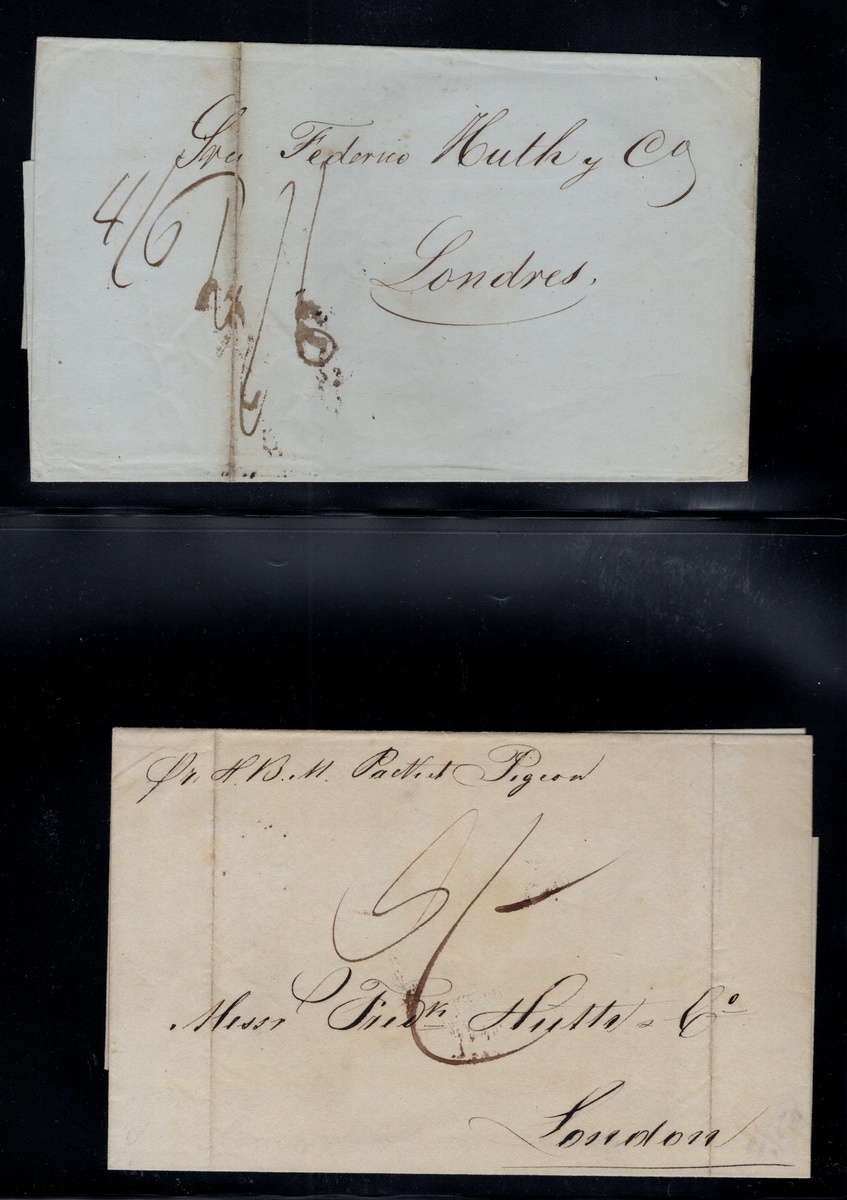 Sres Federico Huth y Co
4/6
Londres.
pr. H. B. M. Packet Pigeon
Messrs Fredk Huth & Co
London